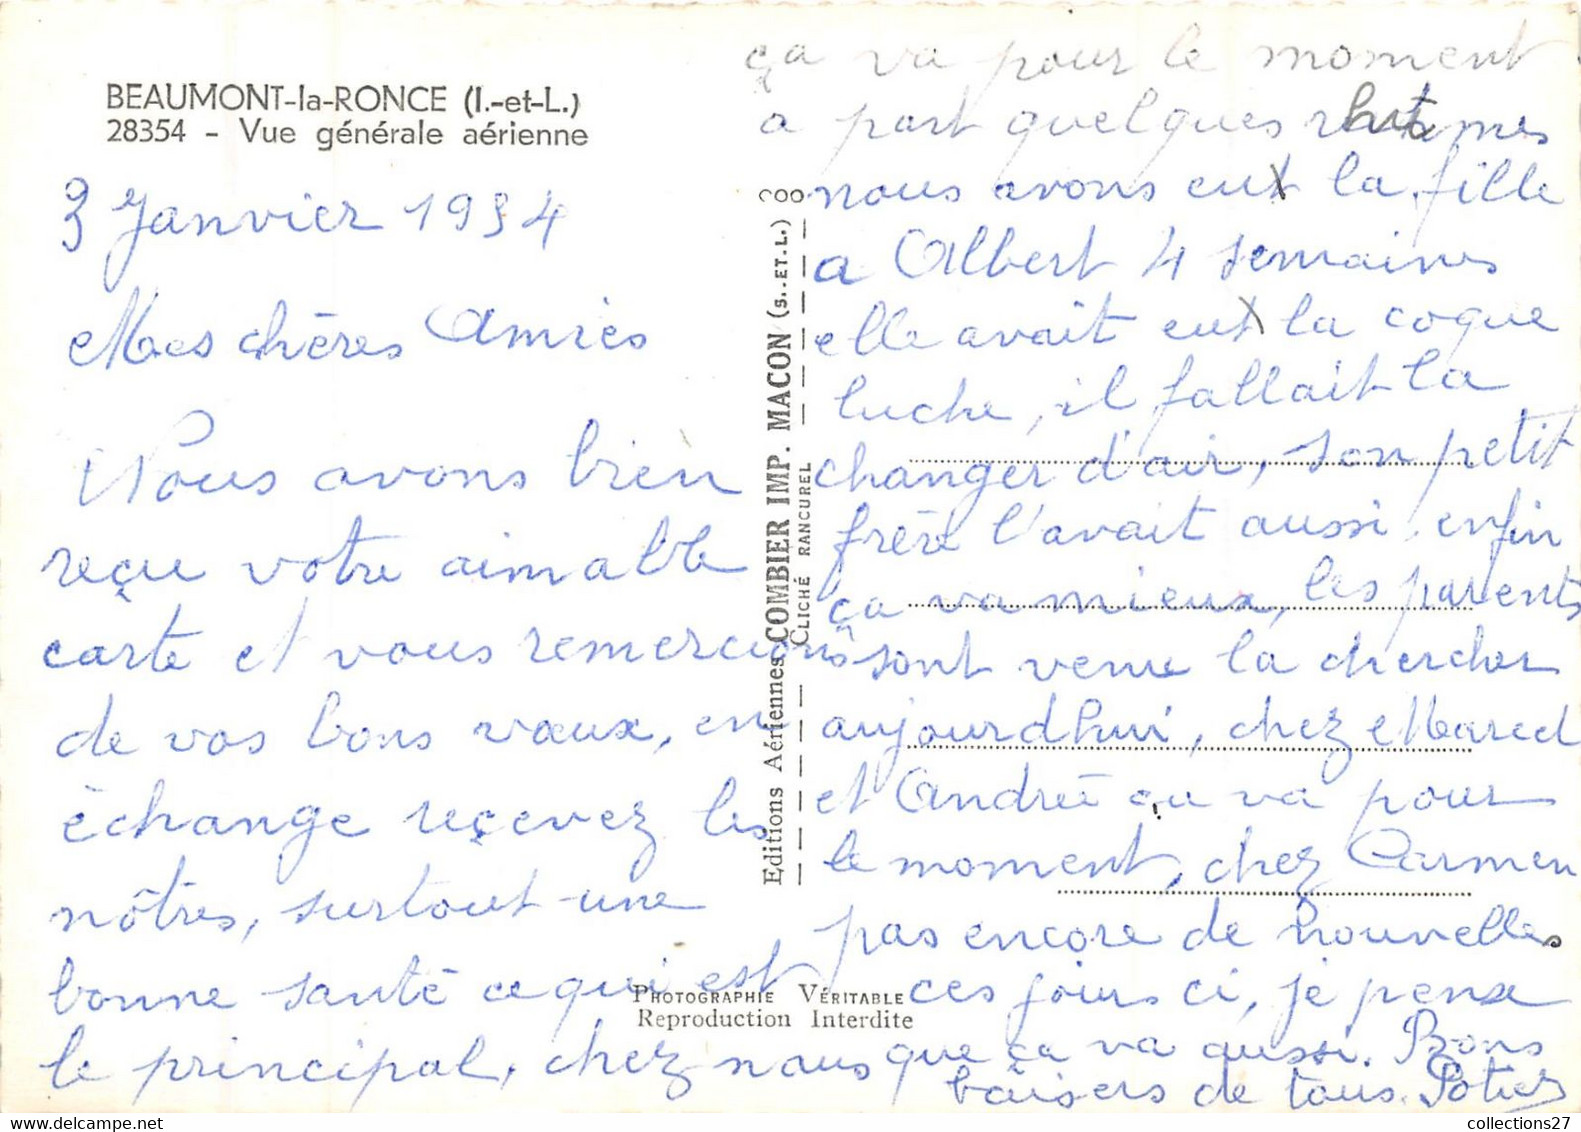 BEAUMONT-la-RONCE (I.-et-L.)
28354 - Vue générale aérienne
3 Janvier 1954
Mes chères Amies
Nous avons bien
reçu votre aimable
carte et vous remercions
de vos bons vœux, en
échange recevez les
nôtres, surtout une
bonne santé ce qui est
le principal, chez nous
ça va pour le moment
a part quelques rhumes
nous avons eut la fille
a Albert 4 semaines
elle avait eut la coque
luche, il fallait la
changer d'air, son petit
frère l'avait aussi, enfin
ça va mieux, les parents
sont venue la chercher
aujourdhui, chez Marcel
et Andrée ça va pour
le moment, chez Carmen
pas encore de nouvelles
ces jours ci, je pense
que ça va aussi. Bons
baisers de tous. Potier
Editions Aériennes COMBIER IMP. MACON (S.-ET-L.)
CLICHÉ RANCUREL
PHOTOGRAPHIE VÉRITABLE
Reproduction Interdite
collections27